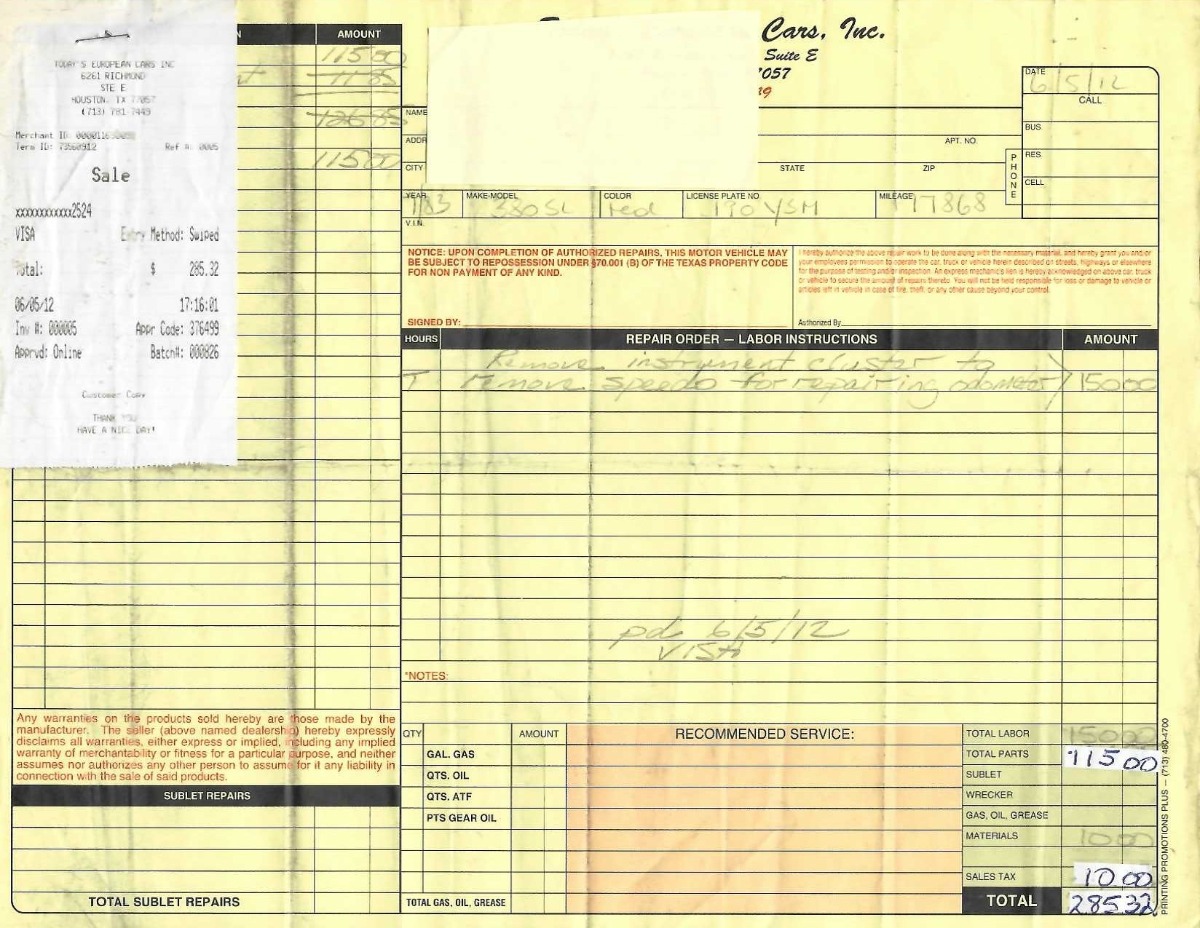 TODAY'S EUROPEAN CARS INC
6261 RICHMOND
STE E
HOUSTON, TX 77057
(713) 781-7449
Merchant ID:
Term ID: 73560912 Ref #: 0005
Sale
xxxxxxxxxxxx2524
VISA Entry Method: Swiped
Total: $ 285.32
06/05/12 17:16:01
Inv #: 000005 Appr Code: 376499
Apprvd: Online Batch#: 000826
Customer Copy
THANK YOU
HAVE A NICE DAY!
AMOUNT
115 00
11 85
126 85
115 00
Cars, Inc.
Suite E
7057
DATE 6/5/12
CALL
NAME
ADDR
APT. NO.
BUS
CITY
STATE
ZIP
PHONE
RES
CELL
YEAR 83 MAKE-MODEL 380SL COLOR red LICENSE PLATE NO 190 YSM MILEAGE 177868
V.I.N.
NOTICE: UPON COMPLETION OF AUTHORIZED REPAIRS, THIS MOTOR VEHICLE MAY
BE SUBJECT TO REPOSSESSION UNDER §70.001 (B) OF THE TEXAS PROPERTY CODE
FOR NON PAYMENT OF ANY KIND.
SIGNED BY:
I hereby authorize the above repair work to be done along with the necessary material, and hereby grant you and/or
your employees permission to operate the car, truck or vehicle herein described on streets, highways or elsewhere
for the purpose of testing and/or inspection. An express mechanic's lien is hereby acknowledged on above car, truck
or vehicle to secure the amount of repairs thereto. You will not be held responsible for loss or damage to vehicle or
articles left in vehicle in case of fire, theft, or any other cause beyond your control.
Authorized By
HOURS REPAIR ORDER — LABOR INSTRUCTIONS AMOUNT
Remove instrument cluster to
T remove speedo for repairing odometer 150 00
pd 6/5/12
VISA
*NOTES:
Any warranties on the products sold hereby are those made by the
manufacturer. The seller (above named dealership) hereby expressly
disclaims all warranties, either express or implied, including any implied
warranty of merchantability or fitness for a particular purpose, and neither
assumes nor authorizes any other person to assume for it any liability in
connection with the sale of said products.
SUBLET REPAIRS
TOTAL SUBLET REPAIRS
QTY AMOUNT
GAL. GAS
QTS. OIL
QTS. ATF
PTS GEAR OIL
TOTAL GAS, OIL, GREASE
RECOMMENDED SERVICE:
TOTAL LABOR 150 00
TOTAL PARTS 115 00
SUBLET
WRECKER
GAS, OIL, GREASE
MATERIALS 10 00
SALES TAX 10.00
TOTAL 285 32
PRINTING PROMOTIONS PLUS — (713) 460-4700